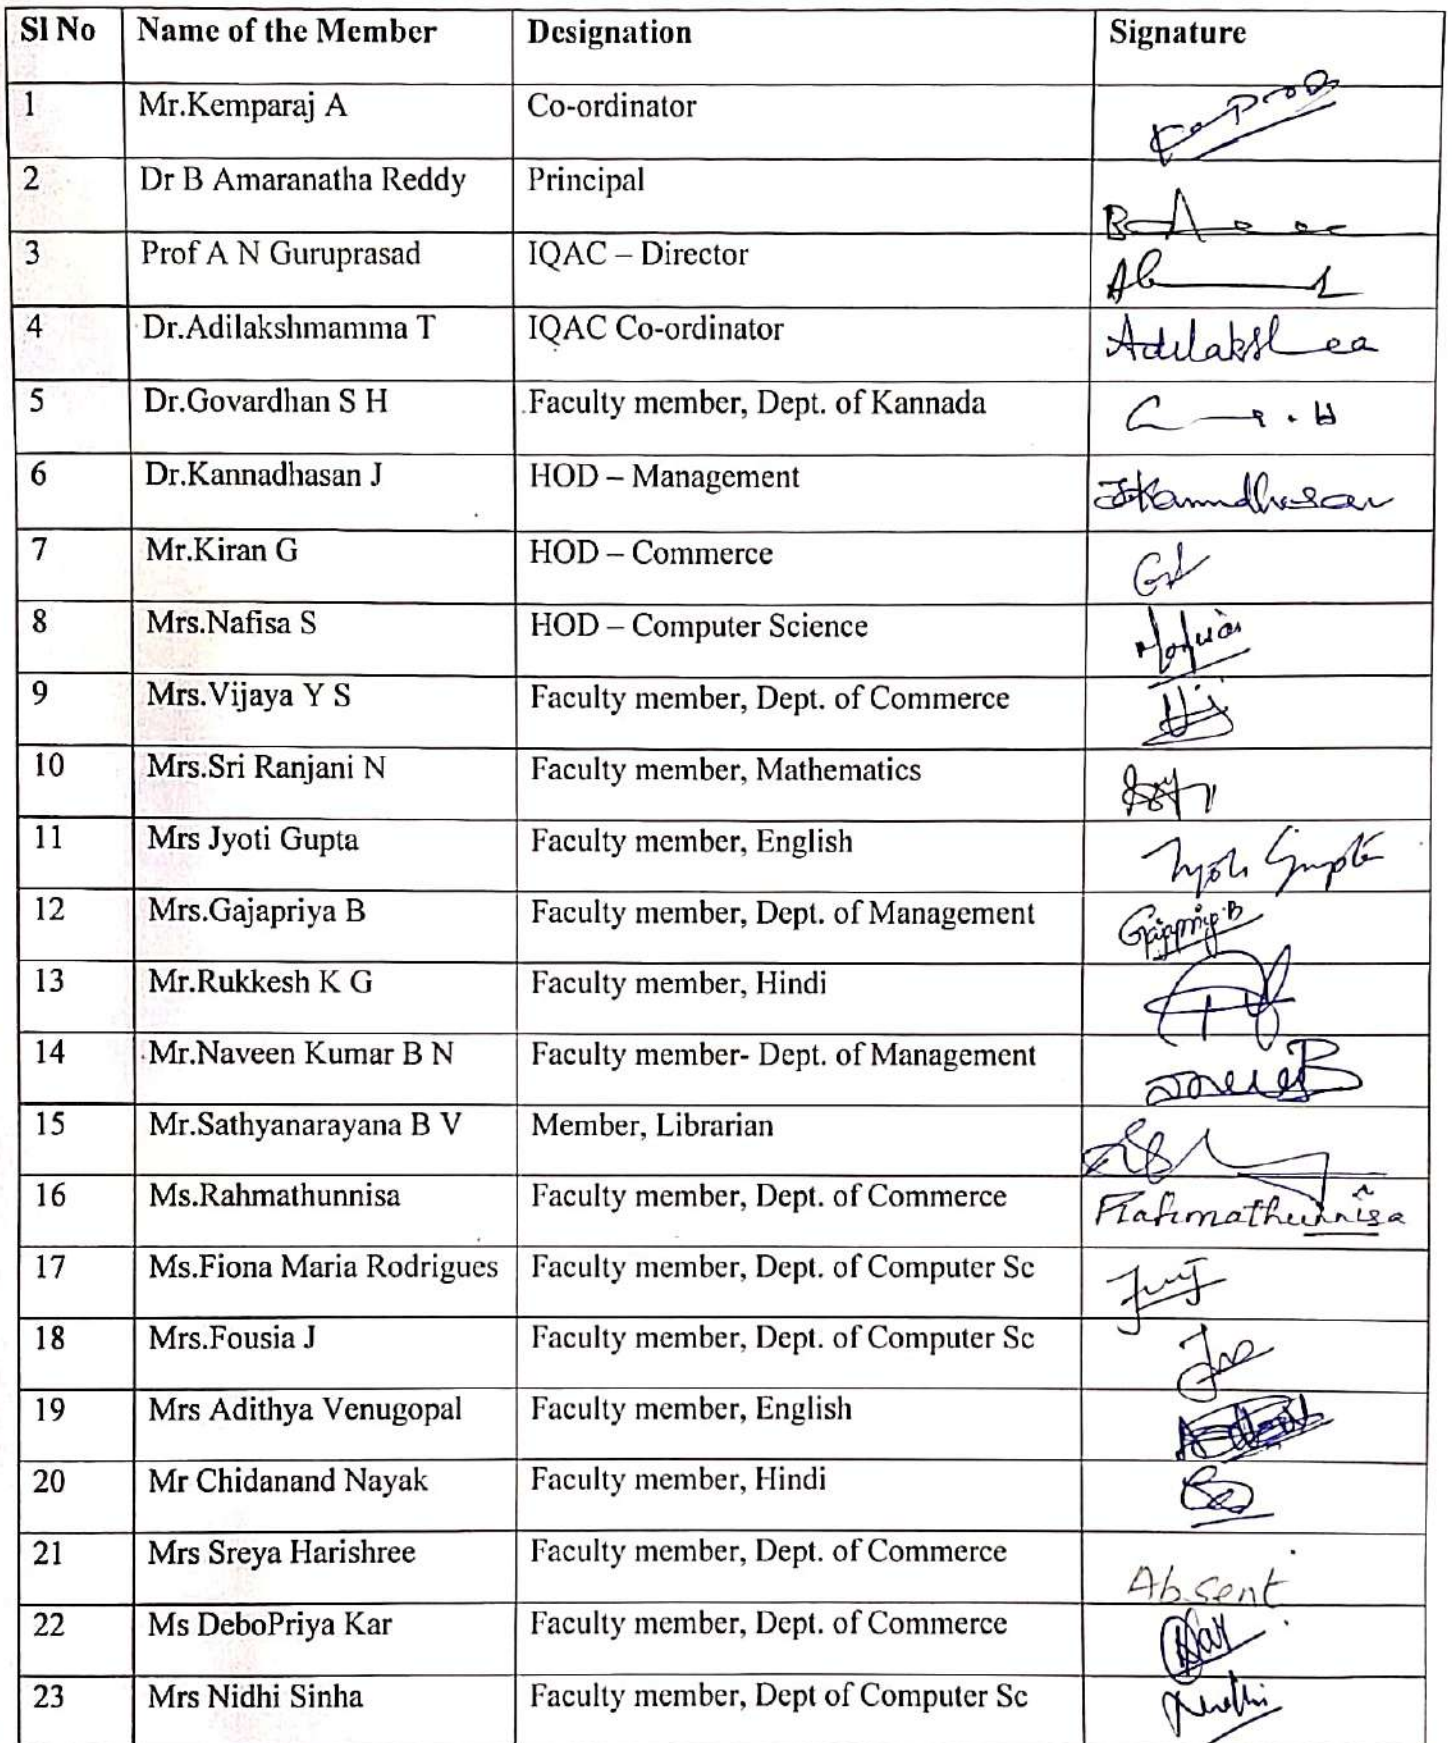 Sl No Name of the Member Designation Signature
1 Mr.Kemparaj A Co-ordinator
2 Dr B Amaranatha Reddy Principal
3 Prof A N Guruprasad IQAC – Director
4 Dr.Adilakshmamma T IQAC Co-ordinator
5 Dr.Govardhan S H Faculty member, Dept. of Kannada
6 Dr.Kannadhasan J HOD – Management
7 Mr.Kiran G HOD – Commerce
8 Mrs.Nafisa S HOD – Computer Science
9 Mrs.Vijaya Y S Faculty member, Dept. of Commerce
10 Mrs.Sri Ranjani N Faculty member, Mathematics
11 Mrs Jyoti Gupta Faculty member, English Jyoti Gupta
12 Mrs.Gajapriya B Faculty member, Dept. of Management Gajapriya.B
13 Mr.Rukkesh K G Faculty member, Hindi
14 Mr.Naveen Kumar B N Faculty member- Dept. of Management
15 Mr.Sathyanarayana B V Member, Librarian
16 Ms.Rahmathunnisa Faculty member, Dept. of Commerce Rahmathunnisa
17 Ms.Fiona Maria Rodrigues Faculty member, Dept. of Computer Sc
18 Mrs.Fousia J Faculty member, Dept. of Computer Sc
19 Mrs Adithya Venugopal Faculty member, English
20 Mr Chidanand Nayak Faculty member, Hindi
21 Mrs Sreya Harishree Faculty member, Dept. of Commerce Absent
22 Ms DeboPriya Kar Faculty member, Dept. of Commerce Kar
23 Mrs Nidhi Sinha Faculty member, Dept of Computer Sc Nidhi